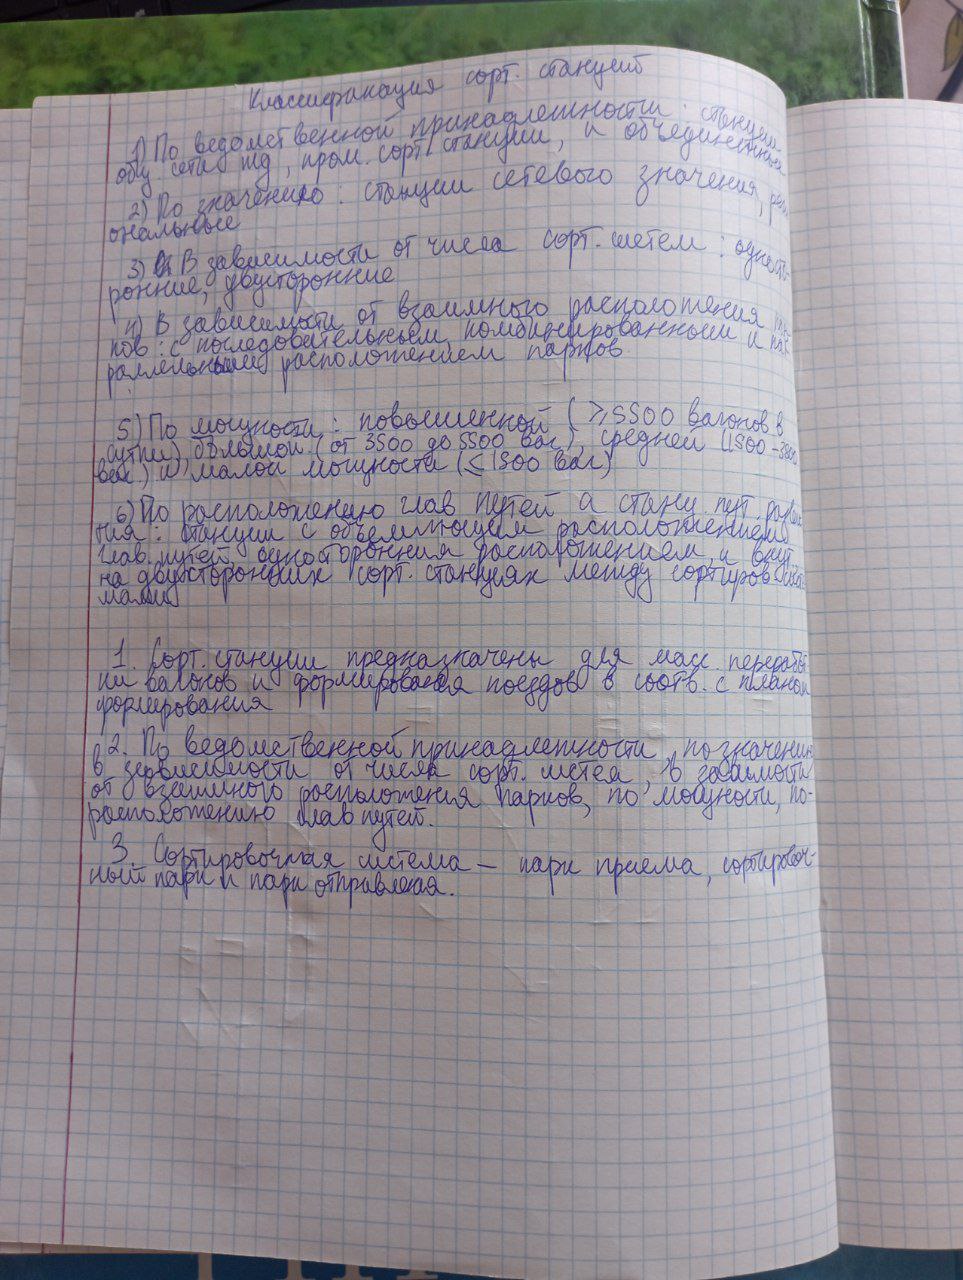 Классификация сорт. станций
1) По ведомственной принадлежности: станции
общ сети жд, пром. сорт станции, и объединенные
2) По значению: станции сетевого значения, реги
ональные
3) В зависимости от числа сорт. систем: односто-
ронние, двусторонние
4) В зависимости от взаимного расположения пар-
ков: с последовательным, комбинированным и па-
раллельным расположением парков
5) По мощности: повышенной (≥5500 вагонов в
сутки) большой (от 3500 до 5500 ваг), средней (1500-3500
ваг.) и малой мощности (≤1500 ваг)
6) По расположению глав путей а станц. пут. разви
тия: станции с объемлющим расположением
глав. путей, односторонния расположением, и внут
на двусторонних сорт. станциях между сортиров систе
мами
1. Сорт. станции предназначены для масс. переработ-
ки вагонов и формирования поездов в соотв. с планом
формирования
2. По ведомственной принадлежности, по значению,
в зависимости от числа сорт. систем, в
от взаимного расположения парков, по мощности, по-
расположению глав путей.
3. Сортировочная система – парк приема, сортировоч-
ный парк и парк отправления.